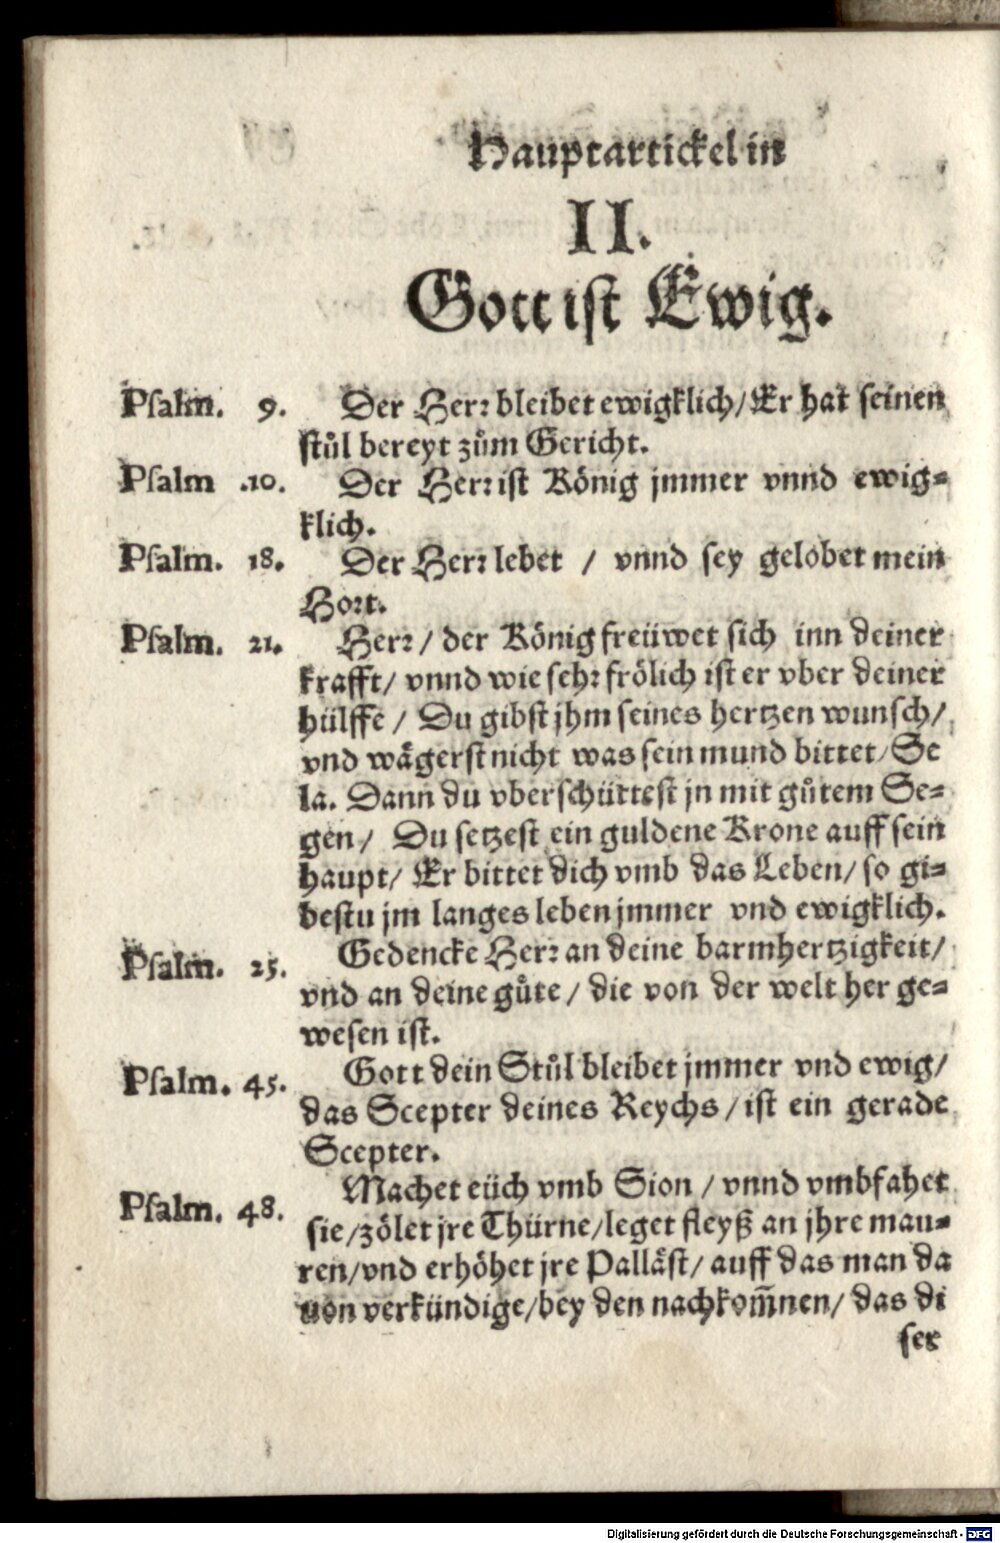 Hauptartickel in
II.
Gott ist Ewig.
Psalm. 9. Der Herr bleibet ewigklich/ Er hat seinen
stůl bereyt zům Gericht.
Psalm .10. Der Herr ist König jmmer vnnd ewig=
klich.
Psalm. 18. Der Herr lebet / vnnd sey gelobet mein
Hort.
Psalm. 21. Herr / der König freüwet sich inn deiner
krafft/ vnnd wie sehr frölich ist er vber deiner
hülffe / Du gibst jhm seines hertzen wunsch/
vnd wågerst nicht was sein mund bittet/ Se
la. Dann du vberschüttest jn mit gůtem Se=
gen/ Du setzest ein guldene Krone auff sein
haupt/ Er bittet dich vmb das Leben/ so gi=
bestu jm langes leben jmmer vnd ewigklich.
Psalm. 25. Gedencke Herr an deine barmhertzigkeit/
vnd an deine gůte / die von der welt her ge=
wesen ist.
Psalm. 45. Gott dein Stůl bleibet jmmer vnd ewig/
das Scepter deines Reychs / ist ein gerade
Scepter.
Psalm. 48. Machet eüch vmb Sion / vnnd vmbfahet
sie/ zölet jre Thürne/ leget fleyß an jhre mau=
ren/ vnd erhöhet jre Pallåst/ auff das man da
uon verkündige/ bey den nachkom̄nen/ das di
ser
Digitalisierung gefördert durch die Deutsche Forschungsgemeinschaft - DFG